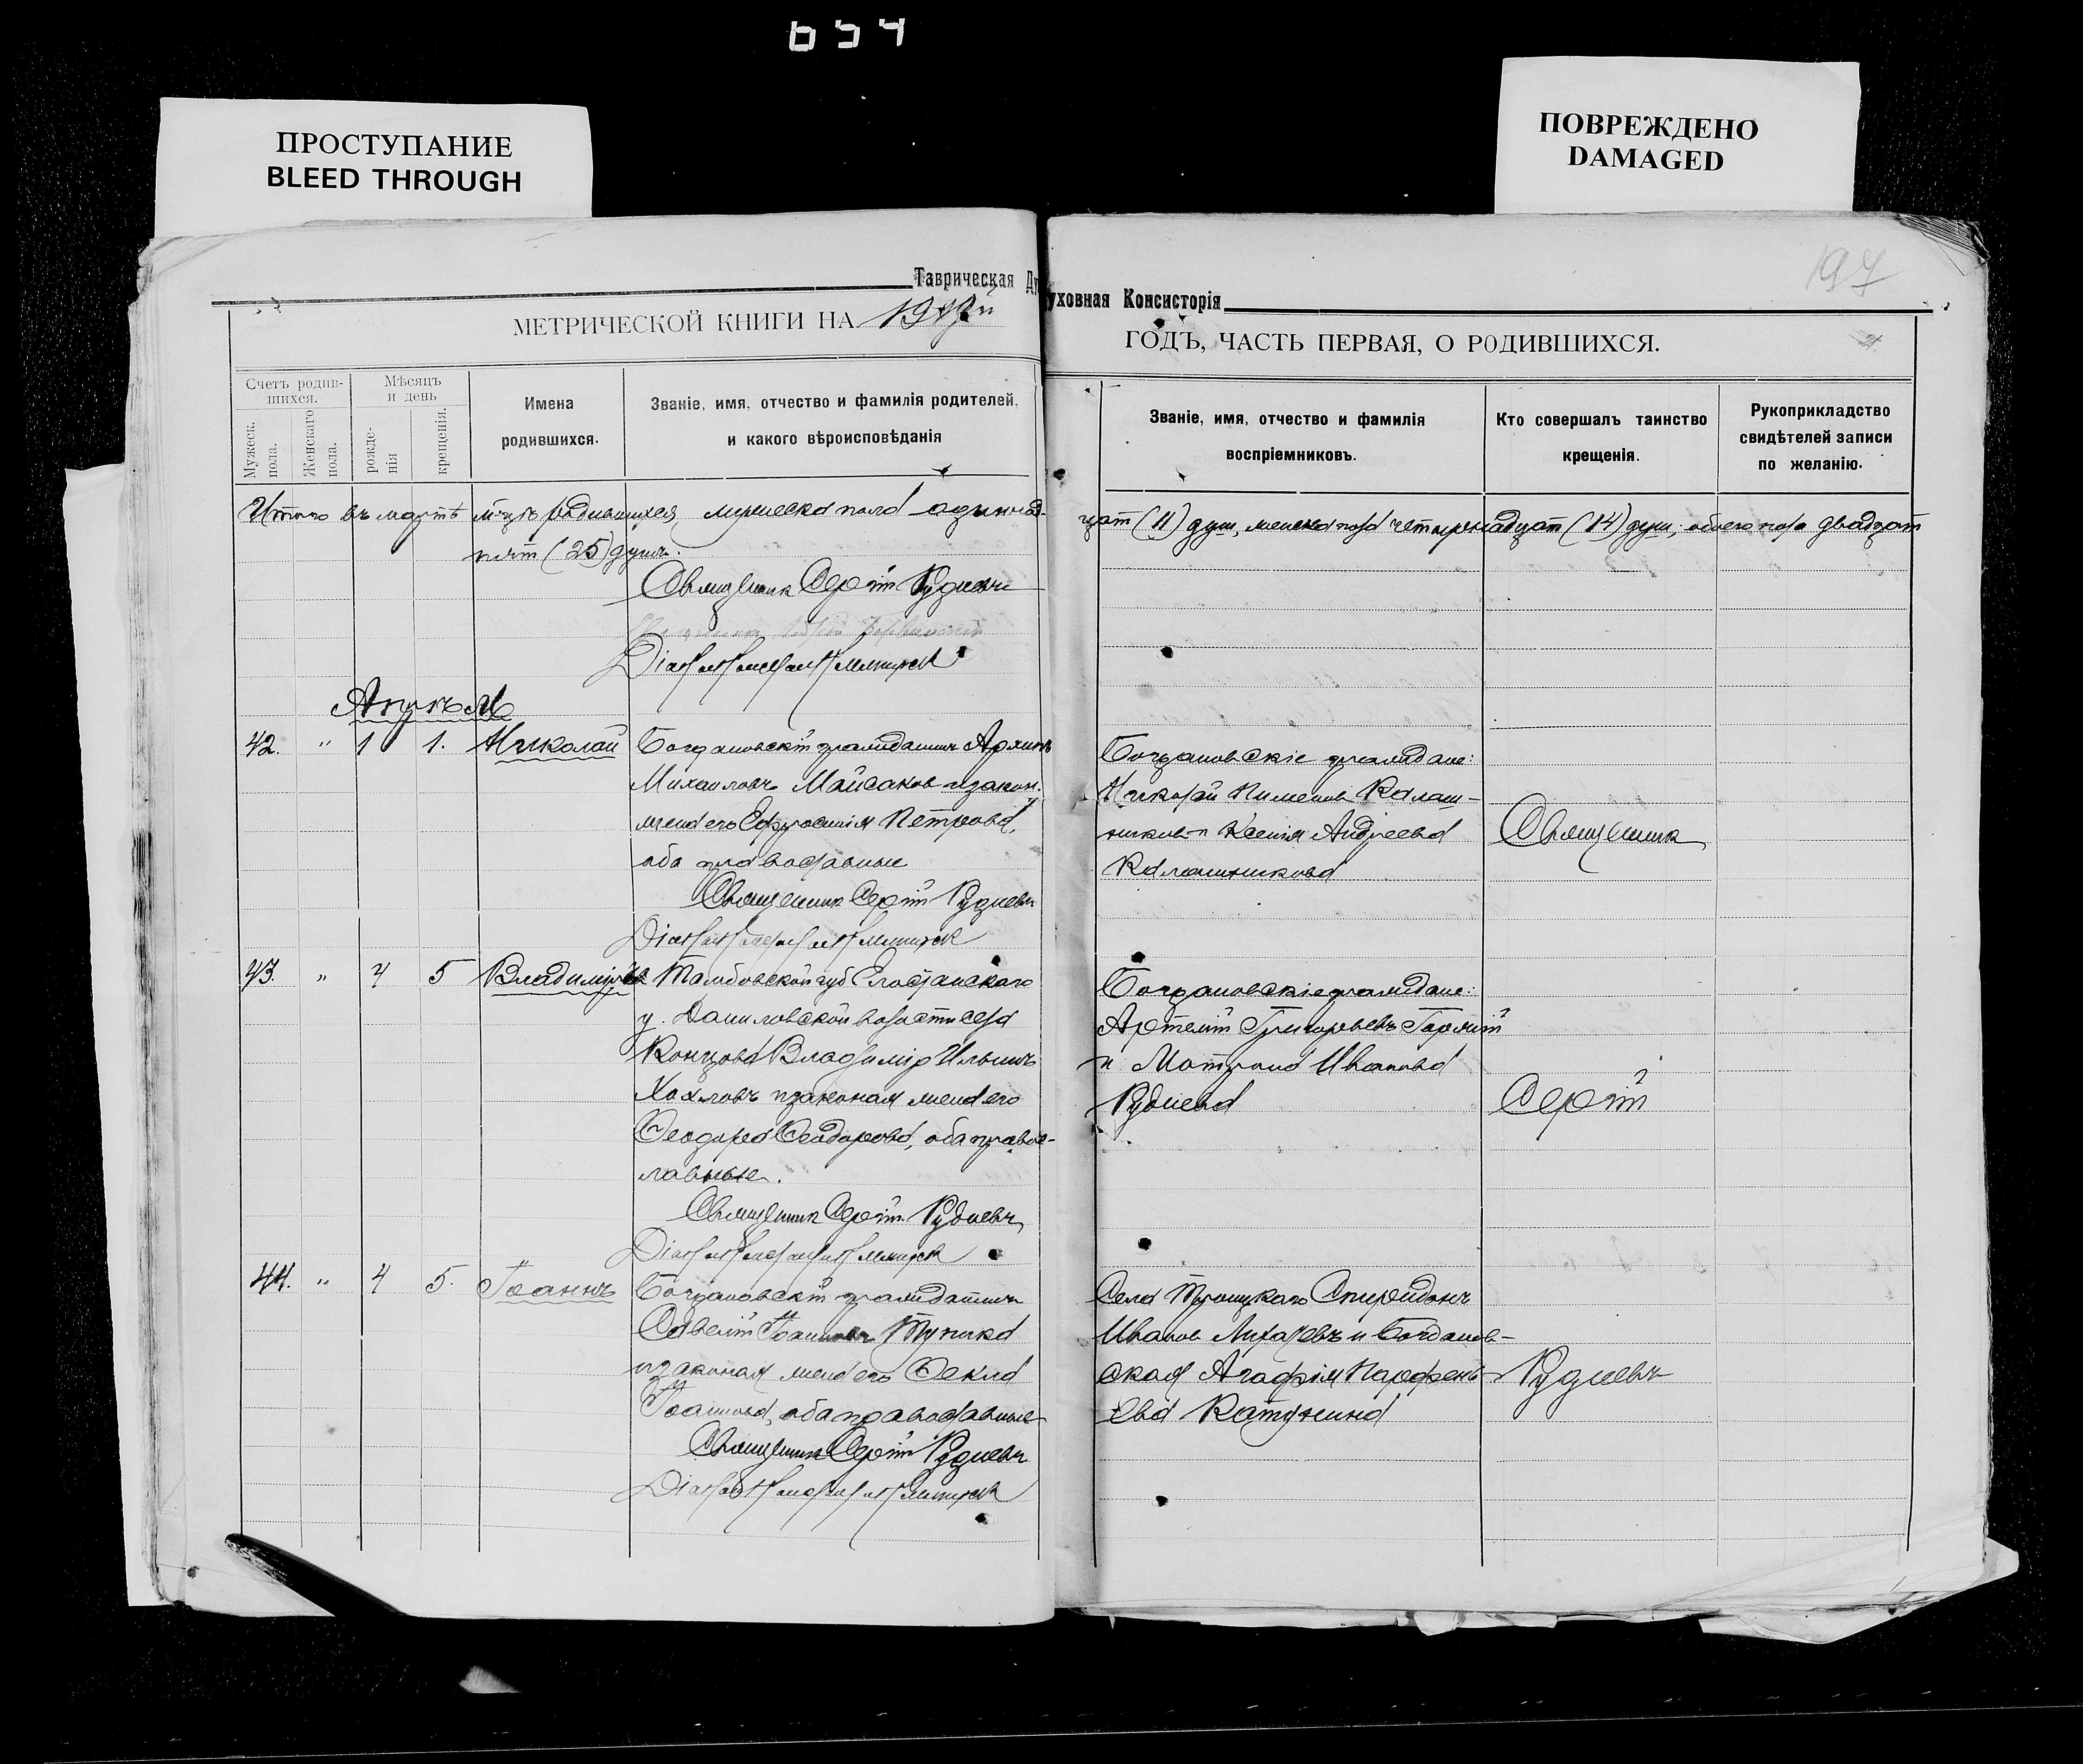 654
ПРОСТУПАНИЕ
BLEED THROUGH
ПОВРЕЖДЕНО
DAMAGED
197
Таврическая Духовная Консисторія
МЕТРИЧЕСКОЙ КНИГИ НА 1919й
ГОДЪ, ЧАСТЬ ПЕРВАЯ, О РОДИВШИХСЯ.
Счетъ родив-
шихся.
Мужеск.
пола.
Женскаго
пола.
Мѣсяцъ
и день
рожде-
нія
крещенія.
Имена
родившихся.
Званіе, имя, отчество и фамилія родителей,
и какого вѣроисповѣданія
Званіе, имя, отчество и фамилія
воспріемниковъ.
Кто совершалъ таинство
крещенія.
Рукоприкладство
свидѣтелей записи
по желанію.
Итого въ мартѣ родившихся, мужеска пола одиннад-
цат (11) душ, женска пола четырнадцат (14) душ, обоего пола двадцат
пят (25) душъ.
Священник Сергій Рудневъ
Апрѣль
42. " 1 1. Николай
Богдановскій гражданин
Михаиловъ Майсаков и закон.
жена его Ефросинія Петрова,
оба православные
Священник Сергій Рудневъ
Богдановскіе граждане:
Николай Пименов Калаш-
ников и Ксенія Андреева
Калашникова
Священник
43. " 4 5 Владиміръ
Тамбовской губ Елатомского
у. Даниловской волости села
Владимір Ильинъ
Хохловъ и законная жена его
Феодора Феодорова, оба правос-
лавные.
Священник Сергій Рудневъ
Богдановскіе граждане:
Григорьевъ
и Матрона Иванова
Руднева
Сергій
44. " 4 5. Іоаннъ
Богдановскій гражданин
Савелій Іоаннов Тупика
и законная жена его Фекла
Іоаннова, оба православные
Священник Сергій Рудневъ
Села Троицкаго Спиридонъ
Иванов Лихачевъ и Богданов-
ская Агафія Парфень-
ева Катунина
Рудневъ